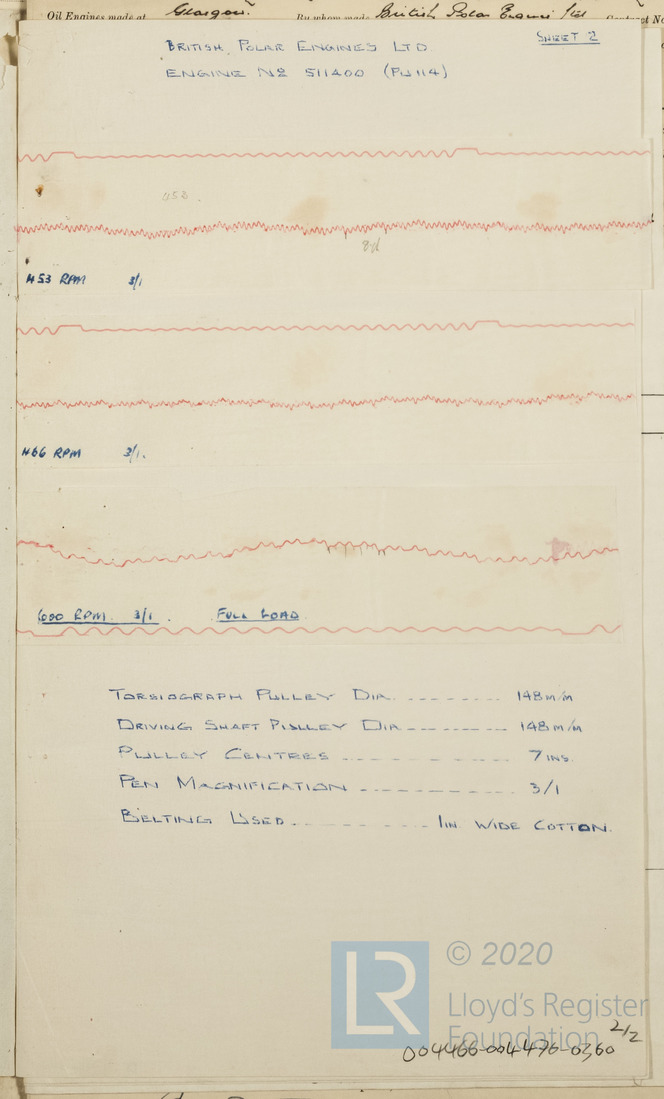 Oil Engines made at Glasgow. By whom made British Polar Engines Ltd Contract No
SHEET 2
BRITISH POLAR ENGINES LTD.
ENGINE Nº 511400 (PU114)
453.
453 RPM 3/1
466 RPM 3/1.
600 RPM. 3/1. FULL LOAD.
TORSIOGRAPH PULLEY DIA. -------- 148 M/M
DRIVING SHAFT PULLEY DIA -------- 148 M/M
PULLEY CENTRES ------------- 7 INS.
PEN MAGNIFICATION ----------- 3/1
BELTING USED. ---------- 1IN WIDE COTTON.
© 2020
LR
Lloyd's Register
Foundation
004466-004476-0360 2/2